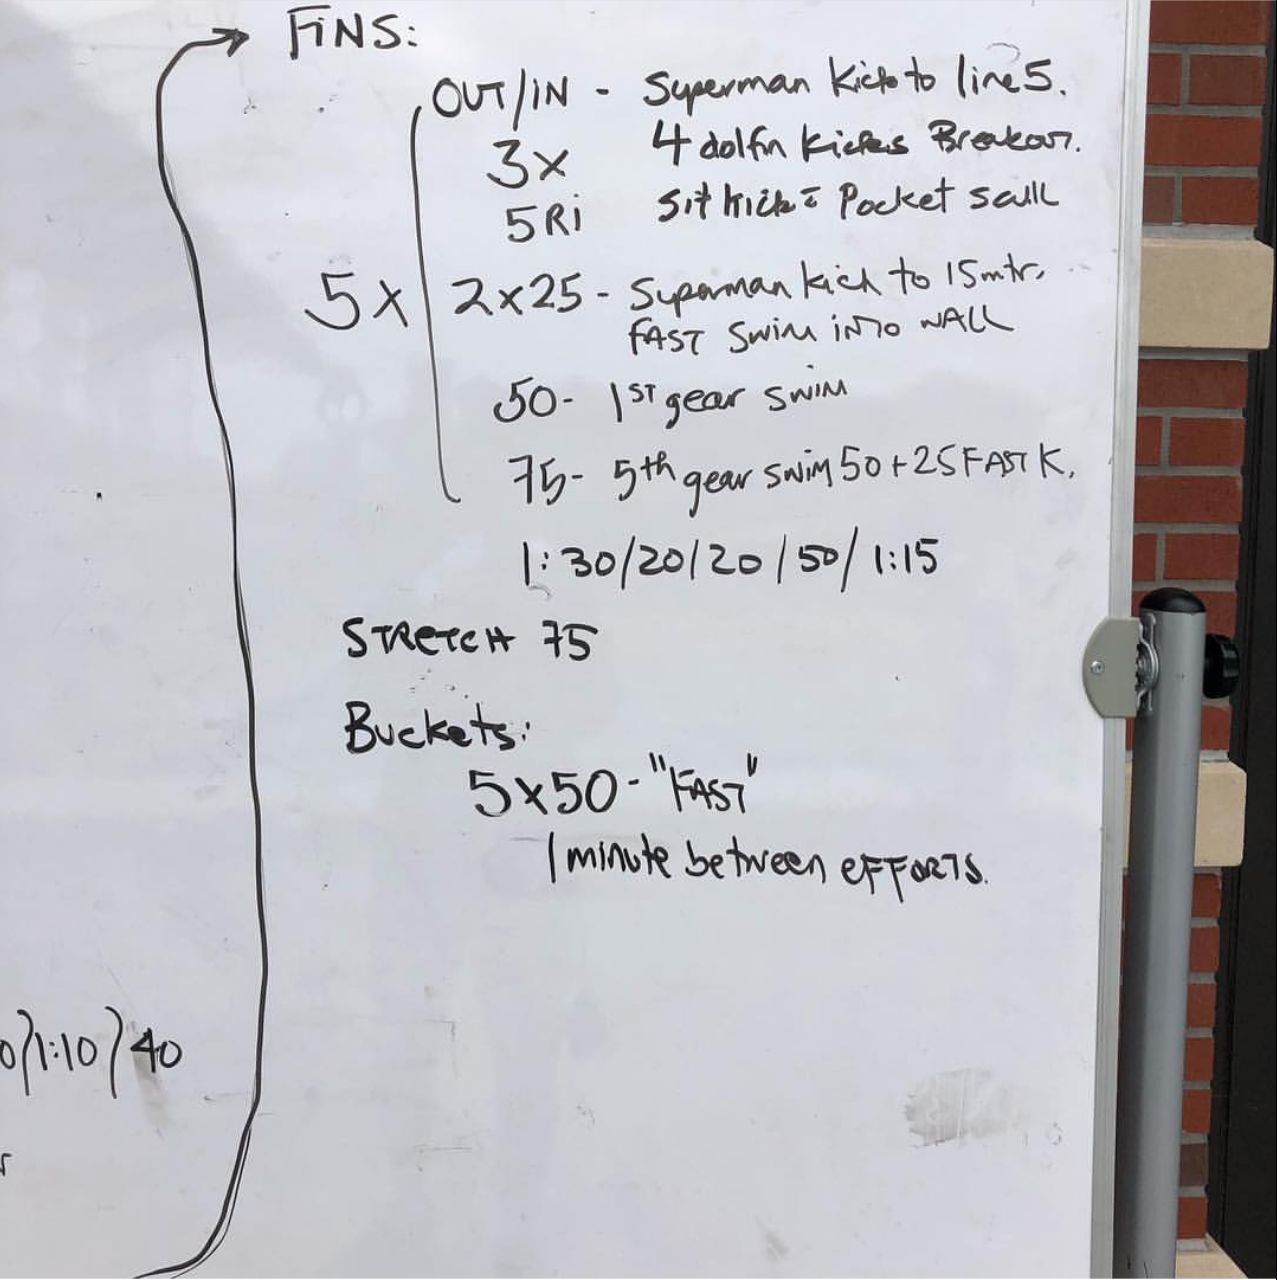 FINS:
OUT/IN - Superman Kick to line 5.
3x 4 dolfin kicks Breakout.
5Ri Sit kick = Pocket scull
5x
2x25 - Superman kick to 15mtr.
FAST SWIM INTO WALL
50- 1ST gear SWIM
75- 5th gear SWIM 50+25 FAST K.
1:30/20/20/50/1:15
STRETCH 75
Buckets:
5x50-"FAST"
1 minute between EFFORTS.
0/1:10/40